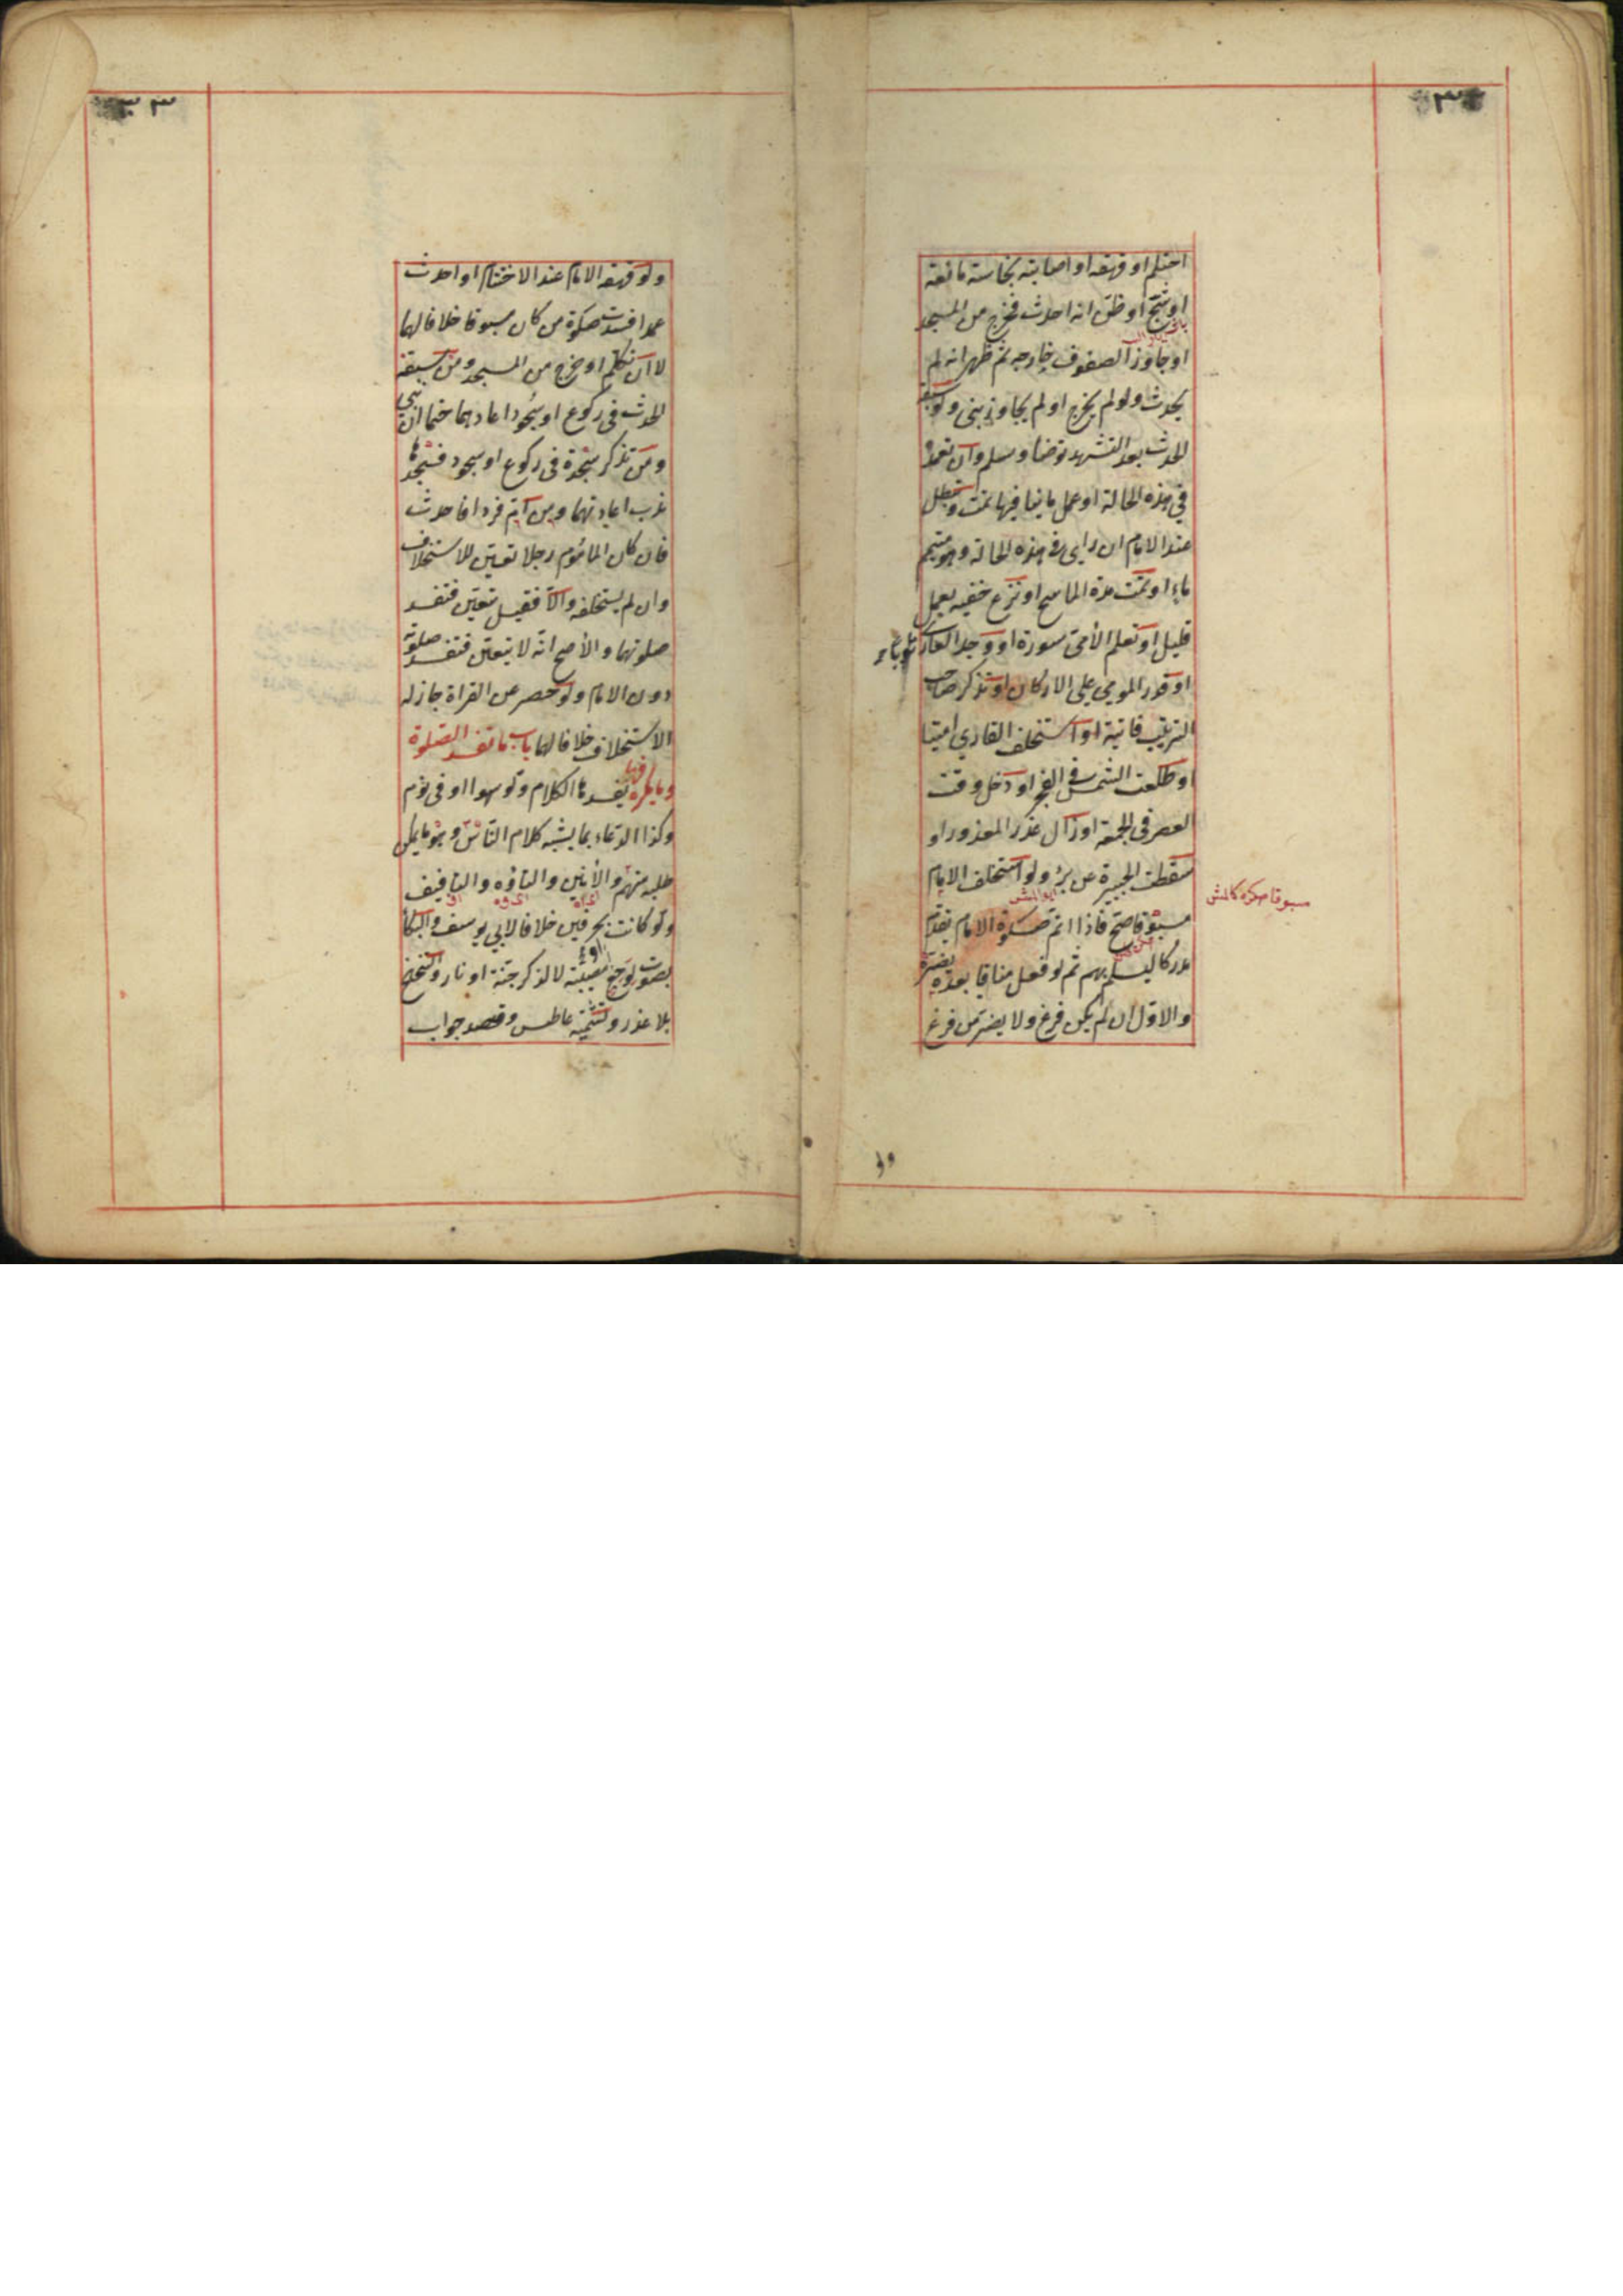 احتلم او قهقه او اصابته نجاسة مانعة
او شج او ظن انه احدث فخرج من المسجد
او جاوز الصفوف خارجه ثم ظهر انه لم
يحدث ولو لم يخرج او لم يجاوز بنى ولو سبقه
الحدث بعد التشهد توضأ وسلم وان تعمد
في هذه الحالة او عمل ما ينافيها تمت وتبطل
عند الامام ان راى في هذه الحالة وهو متيمم
ماء او تمت مدة الماسح او نزع خفيه بعمل
قليل او تعلم الأمى سورة او وجد العارى ثوبا
او قدر المومي على الاركان او تذكر صاحب
الترتيب فائتة او استخلف القاري اميا
او طلعت الشمس في الفجر او دخل وقت
العصر فى الجمعة او زال عذر المعذور او
سقطت الجبيرة عن برء ولو استخلف الامام
مسبوقا صح فاذا اتم صلوة الامام يقدم
مدركا ليسلم بهم ثم لو فعل منافيا بعده يضره
والاول ان لم يكن فرغ ولا يضر من فرغ
ولو قهقه الامام عند الاختتام او احدث
عمدا فسدت صلوة من كان مسبوقا خلافا لهما
لا ان تكلم او خرج من المسجد ومن سبقه
الحدث فى ركوع او سجود اعادهما حتما ان بنى
ومن تذكر سجدة فى ركوع او سجود فسجدها
ندب اعادتهما ومن ام فردا فاحدث
فان كان المأموم رجلا تعين للاستخلاف
وان لم يستخلفه والا فقيل يتعين فتفسد
صلوتهما والأصح انه لا يتعين فتفسد صلوته
دون الامام ولو حصر عن القراة جاز له
الاستخلاف خلافا لهما باب ما تفسد الصلوة
وما يكره فيها يفسدها الكلام ولو سهوا او فى نوم
وكذا الدعاء بما يشبه كلام الناس وهو ما يمكن
طلبه منهم والأنين والتاوه والتافيف
ولو كانت بحرفين خلافا لابي يوسف والبكاء
بصوت لوجع او مصيبة لا لذكر جنة او نار والتنحنح
بلا عذر وتشميت عاطس وقصد جواب